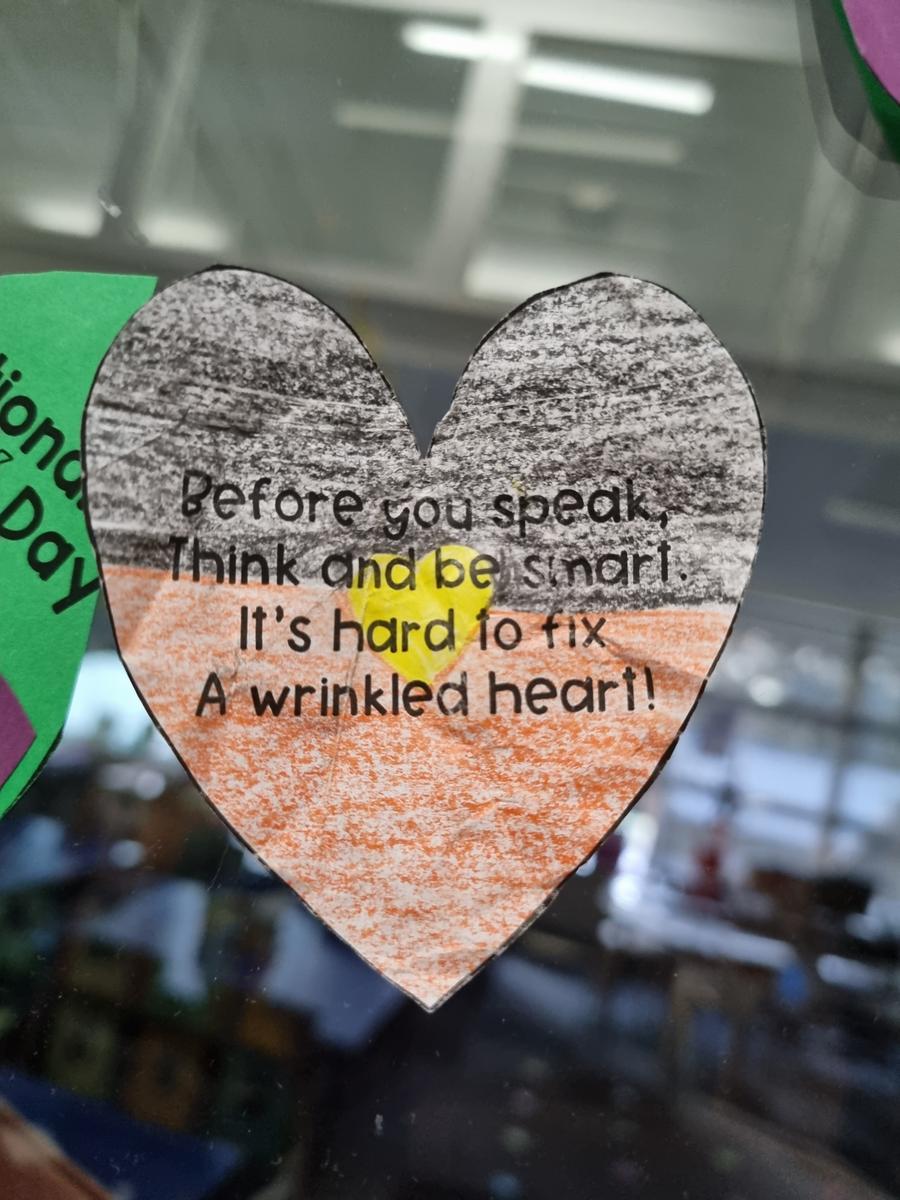 Before you speak,
Think and be smart.
It's hard to fix
A wrinkled heart!
Day